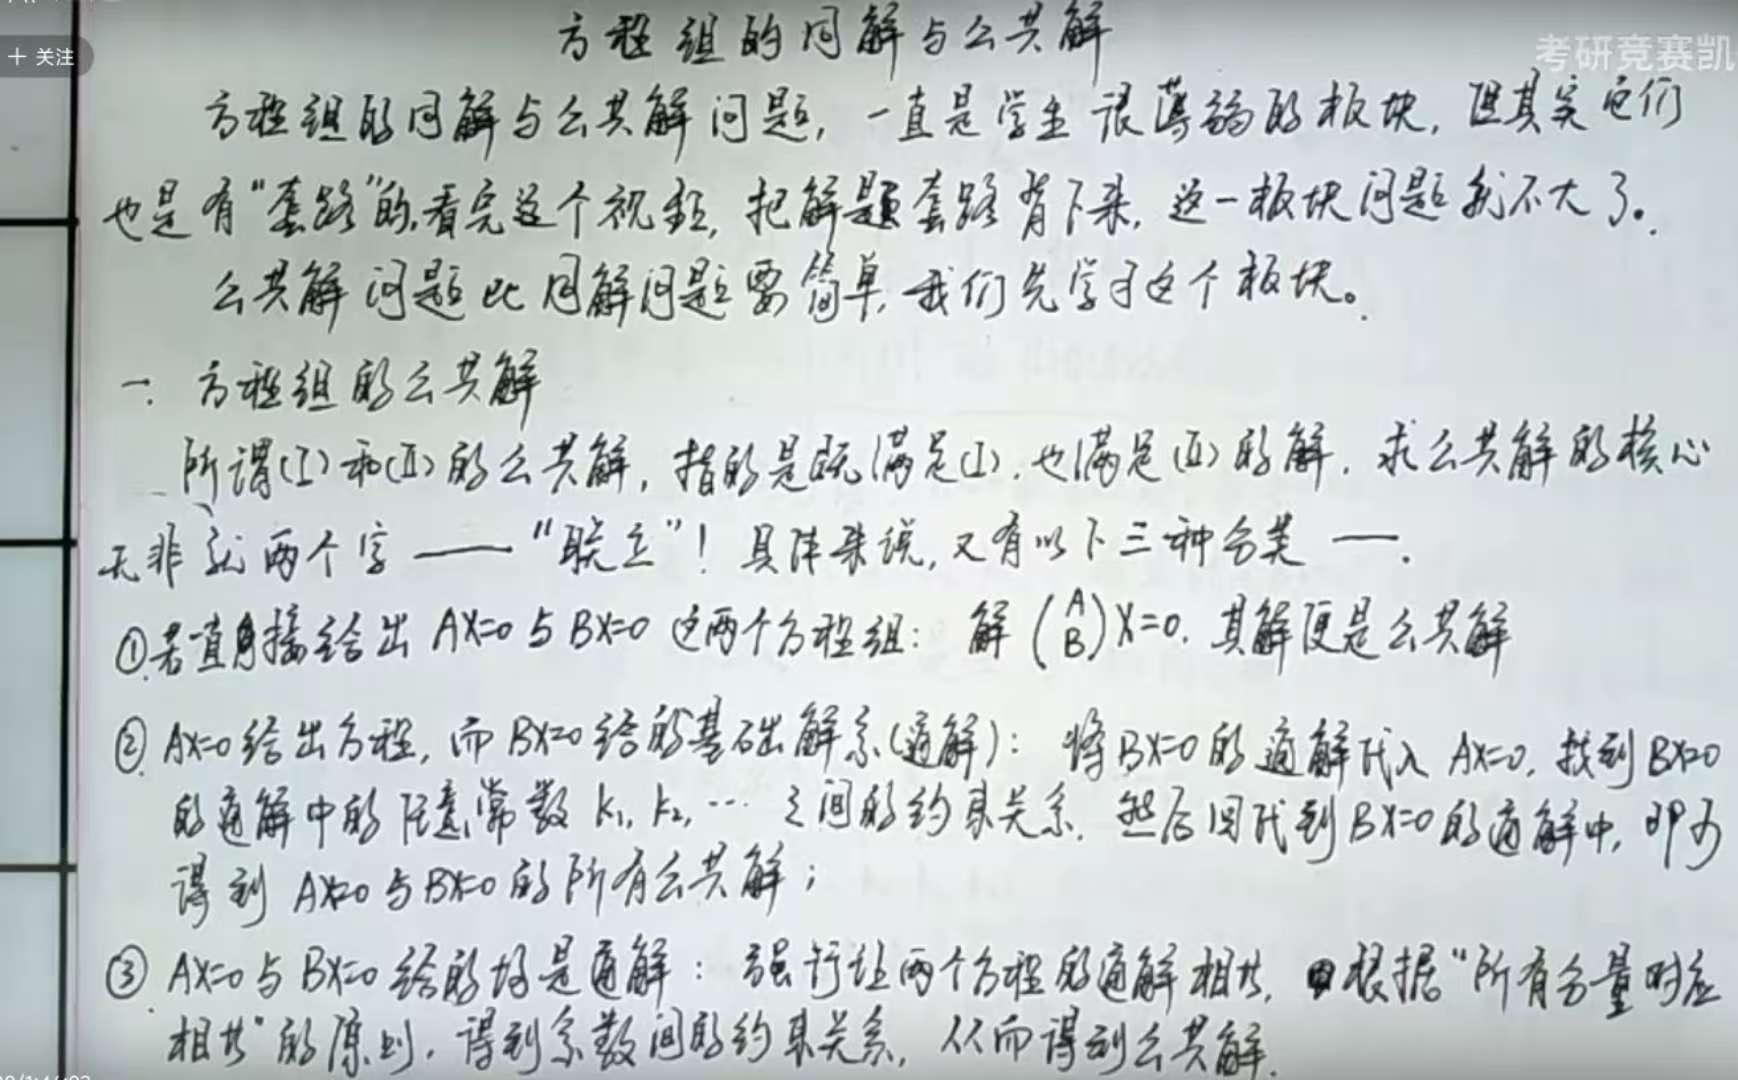 方程组的同解与公共解
+ 关注
考研竞赛凯
方程组的同解与公共解问题，一直是学生很薄弱的板块，但其实它们
也是有“套路”的，看完这个视频，把解题套路背下来，这一板块问题就不大了。
公共解问题比同解问题要简单，我们先学习这个板块。
一. 方程组的公共解
所谓(I)和(II)的公共解，指的是既满足(I)，也满足(II)的解，求公共解的核心
无非就两个字——“联立”！具体来说，又有以下三种分类——.
①若直接给出 AX=0 与 BX=0 这两个方程组：解 (A B)X=0. 其解便是公共解
② AX=0给出方程，而 BX=0 给的基础解系(通解)：将BX=0 的通解代入 AX=0，找到BX=0
的通解中的任意常数 k₁, k₂, … 之间的约束关系，然后回代到BX=0的通解中，即可
得到 AX=0 与BX=0 的所有公共解；
③ AX=0 与 BX=0 给的均是通解：强行让两个方程的通解相等，根据“所有分量对应
相等”的原则，得到系数间的约束关系，从而得到公共解.